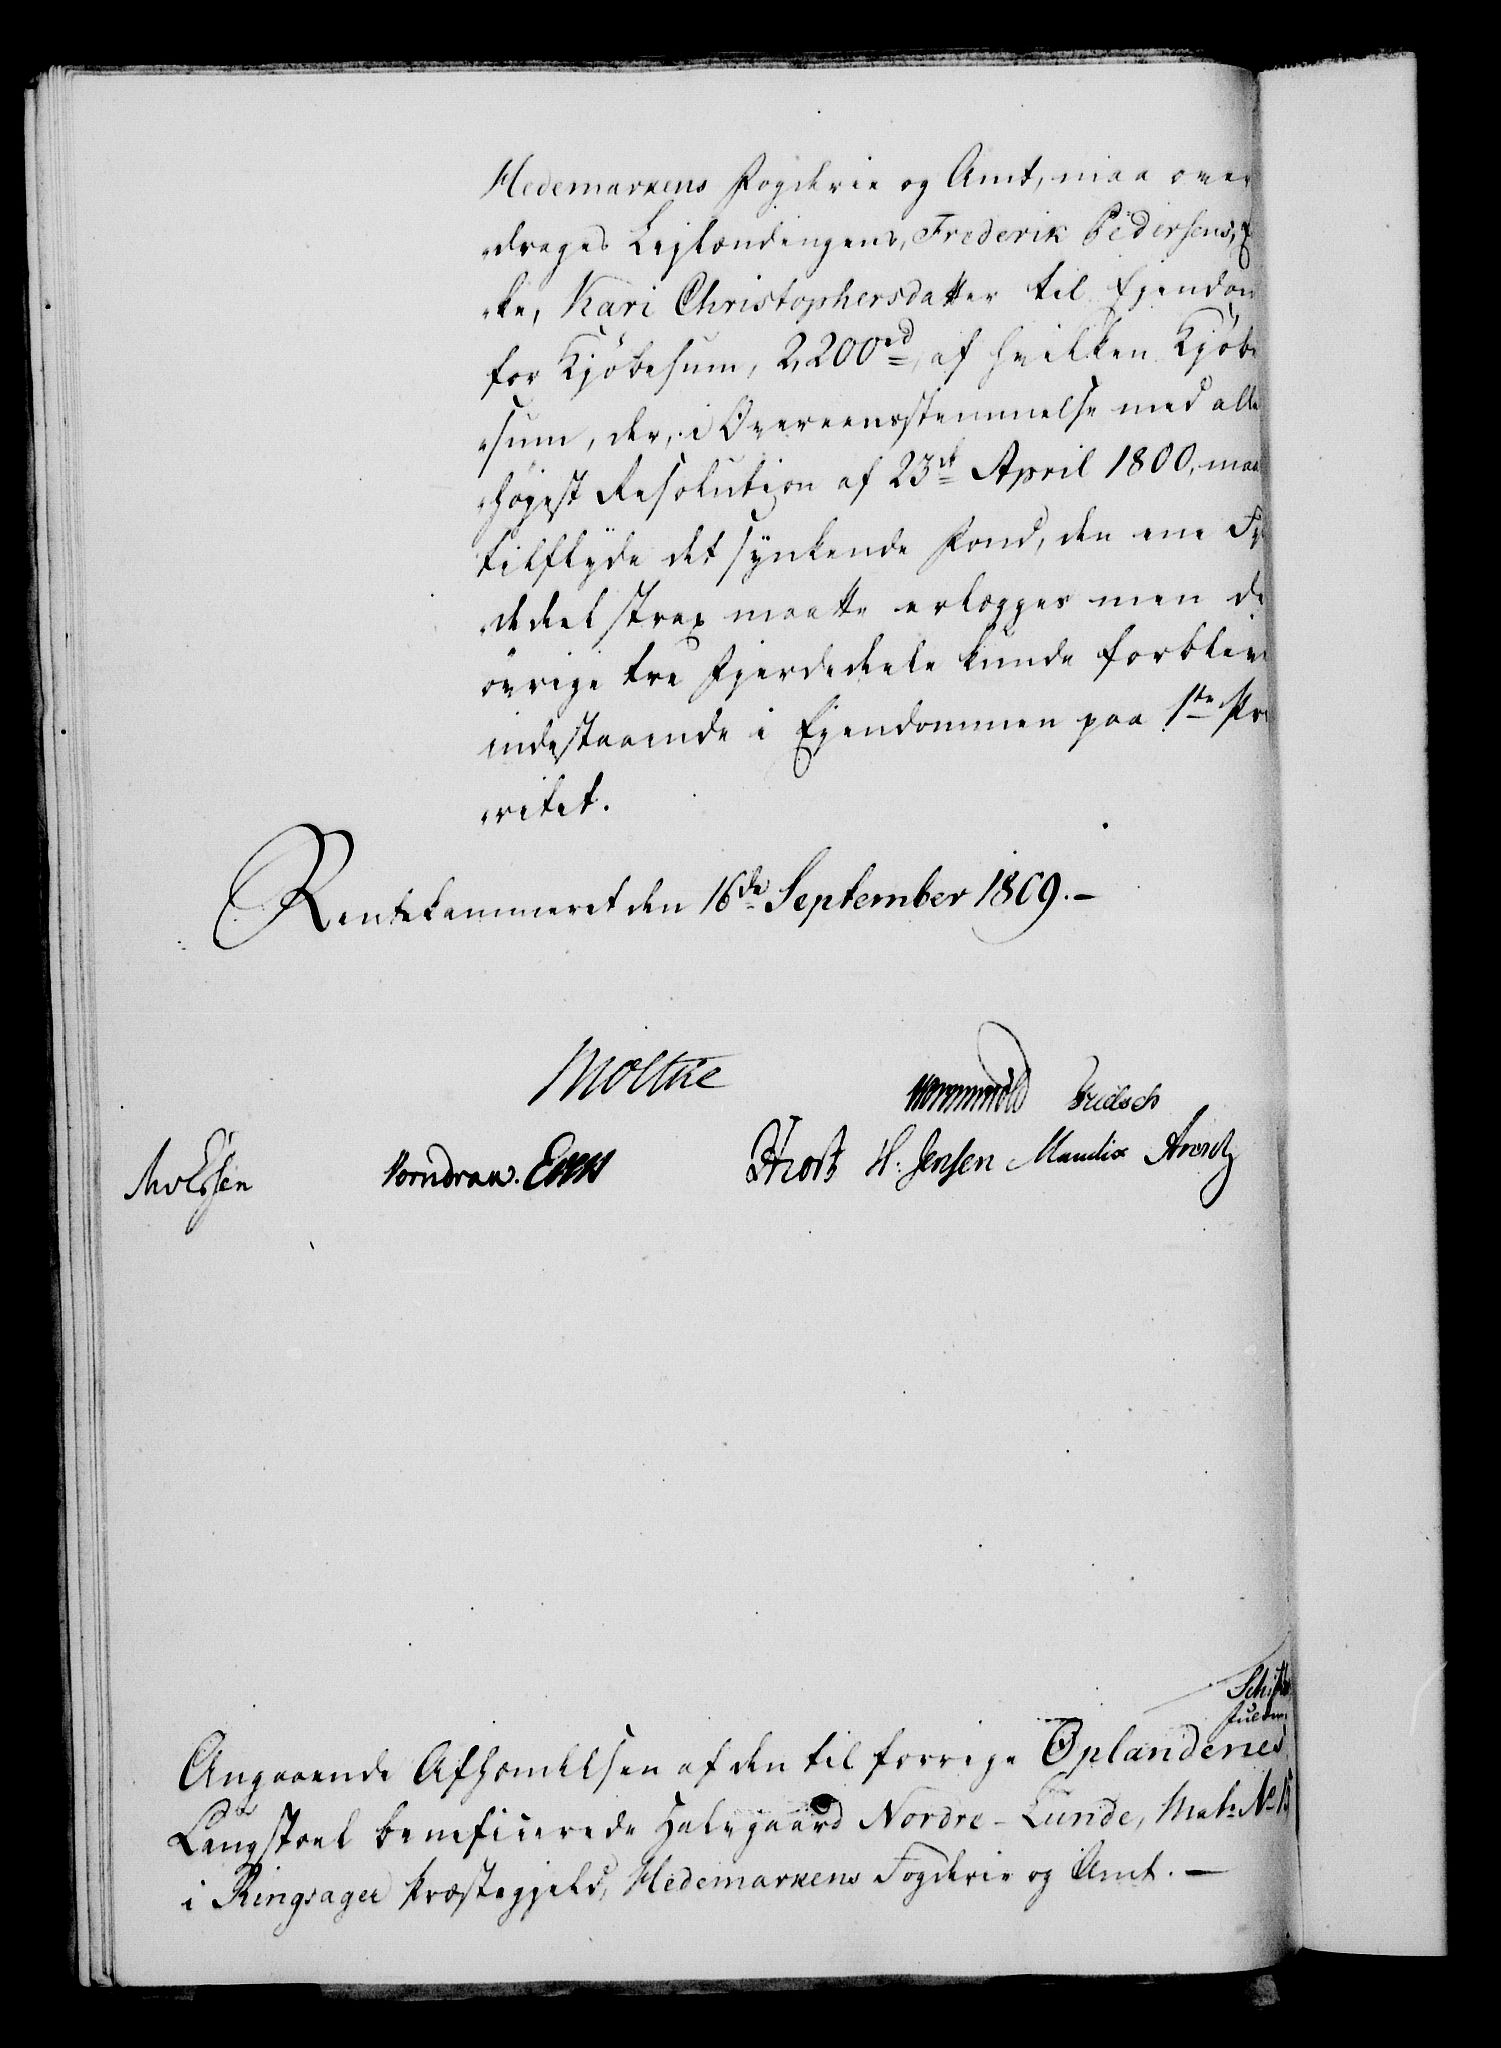 Hedemarkens Fogderie og Amt, maa over
drages Lejlændingens, Frederik Pedersens, E
ke, Kari Christophersdatter til Ejendom
for Kjöbesum, 2,200rd, af hvilken Kjöbe
sum, der, i Overeensstemmelse med aller
höjest Resolution af 23de April 1800, maa
tilflyde det synkende Fond, den ene Fje
dedeel strax maatte erlægges men de
övrige tre Fjerdedeele kunde forblive
indestaaende i Ejendommen paa 1ste Prio
ritet.
Rentekammeret den 16de September 1809.-
Moltke
Wormskiold Fridsch
Knorndran. Hrost H: Jensen Mandix Arentz
Angaaende Afhændelsen af den til forrige Oplandenes
Laugstoel beneficerede halvegaard Nordre-Lunde, Mat: No 15
i Ringsager Præstegjeld, Hedemarkens Fogderie og Amt.-